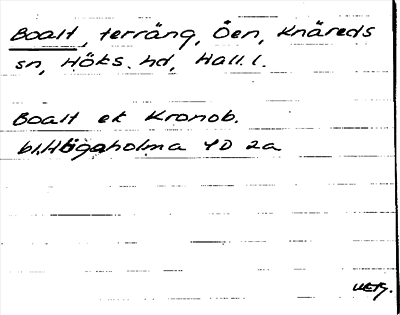 Boalt, terräng, Öen, Knäreds
sn, Höks. hd, Hall. l.
Boalt ek Kronob.
bl. Högaholma 4D 2a